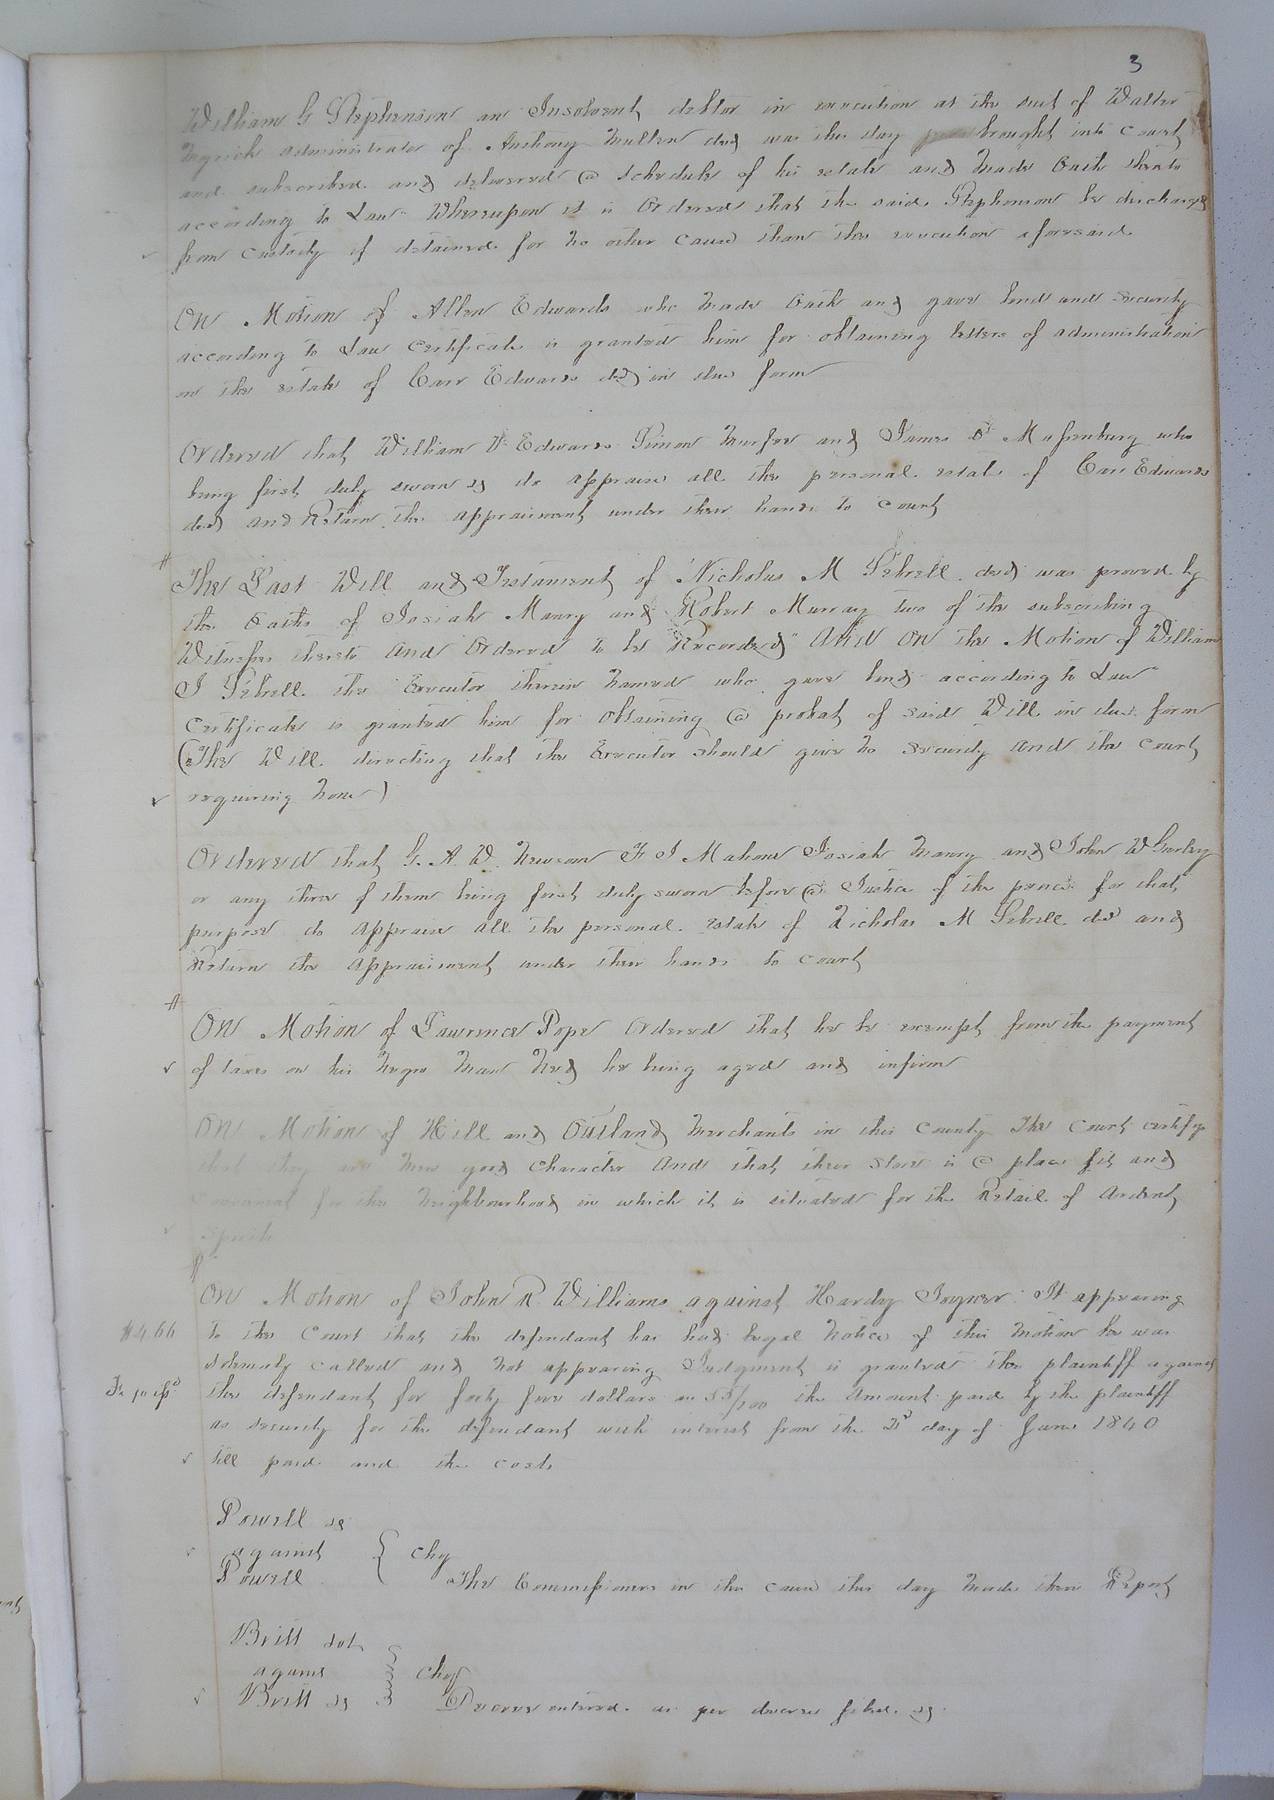 3
William G Stephenson an Insolvent debtor in execution at the suit of Walter
Myrick administrator of Anthony Mullen decd was this day brought into Court
and subscribed and delivered a schedule of his estate and made Oath thereto
according to Law Whereupon it is Ordered that the said Stephenson be discharged
from Custody if detained for no other cause than the execution aforesaid
On Motion of Allen Edwards who made Oath and gave bond and security
according to Law Certificate is granted him for obtaining letters of administration
on the estate of Carr Edwards decd in due form
Ordered that William Edwards Simon Murfee and James Massenburg who
being first duly sworn &c do appraise all the personal estate of Carr Edwards
decd and Return the appraisment under their hands to court
The Last Will and Testament of Nicholas M Sebrell decd was proved by
the oaths of Josiah Manry and Robert Murray two of the subscribing
Witnesses thereto And Ordered to be Recorded And On the Motion of William
J Sebrell the Executor therein named who gave bond according to Law
Certificate is granted him for obtaining a probat of said Will in due form
(The Will directing that the Executor should give no security and the court
requiring none)
Ordered that G. A. W. Newsom F J Mahone Josiah Manry and John W Gurley
or any three of them being first duly sworn before a Justice of the peace for that
purpose do appraise all the personal estate of Nicholas M Sebrell decd and
Return the appraisment under their hands to court
On Motion of Lawrence Pope Ordered that he be exempt from the payment
of taxes on his Negro Man Ned he being aged and infirm
On Motion of Hill and Outland Merchants in this County The Court certify
that they are men good Character And that their Store is a place fit and
convenient for the Neighbourhood in which it is situated for the Retail of Ardent
Spirits
On Motion of John R Williams against Hardy Joyner It appearing
$4.66
to the Court that the defendant has had legal Notice of this motion he was
solemnly called and not appearing Judgment is granted the plaintiff against
the defendant for forty five dollars and 55/100 the amount paid by the plaintiff
as security for the defendant with interest from the day of June 1840
till paid and the costs
Powell &c
against } Chy
Powell
The Commissioners in the cause this day made their Report
Britt
against } Chy
Britt &c
Decree entered as per decree filed &c